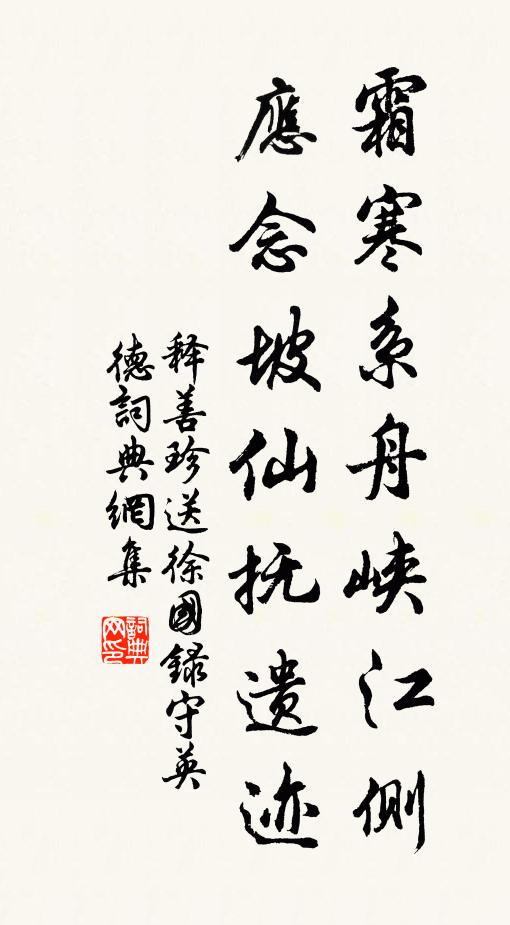 霜寒系舟峡江側
應念坡仙抚遗迹
释善珍送徐國録守英
德詞典網集
詞典网印